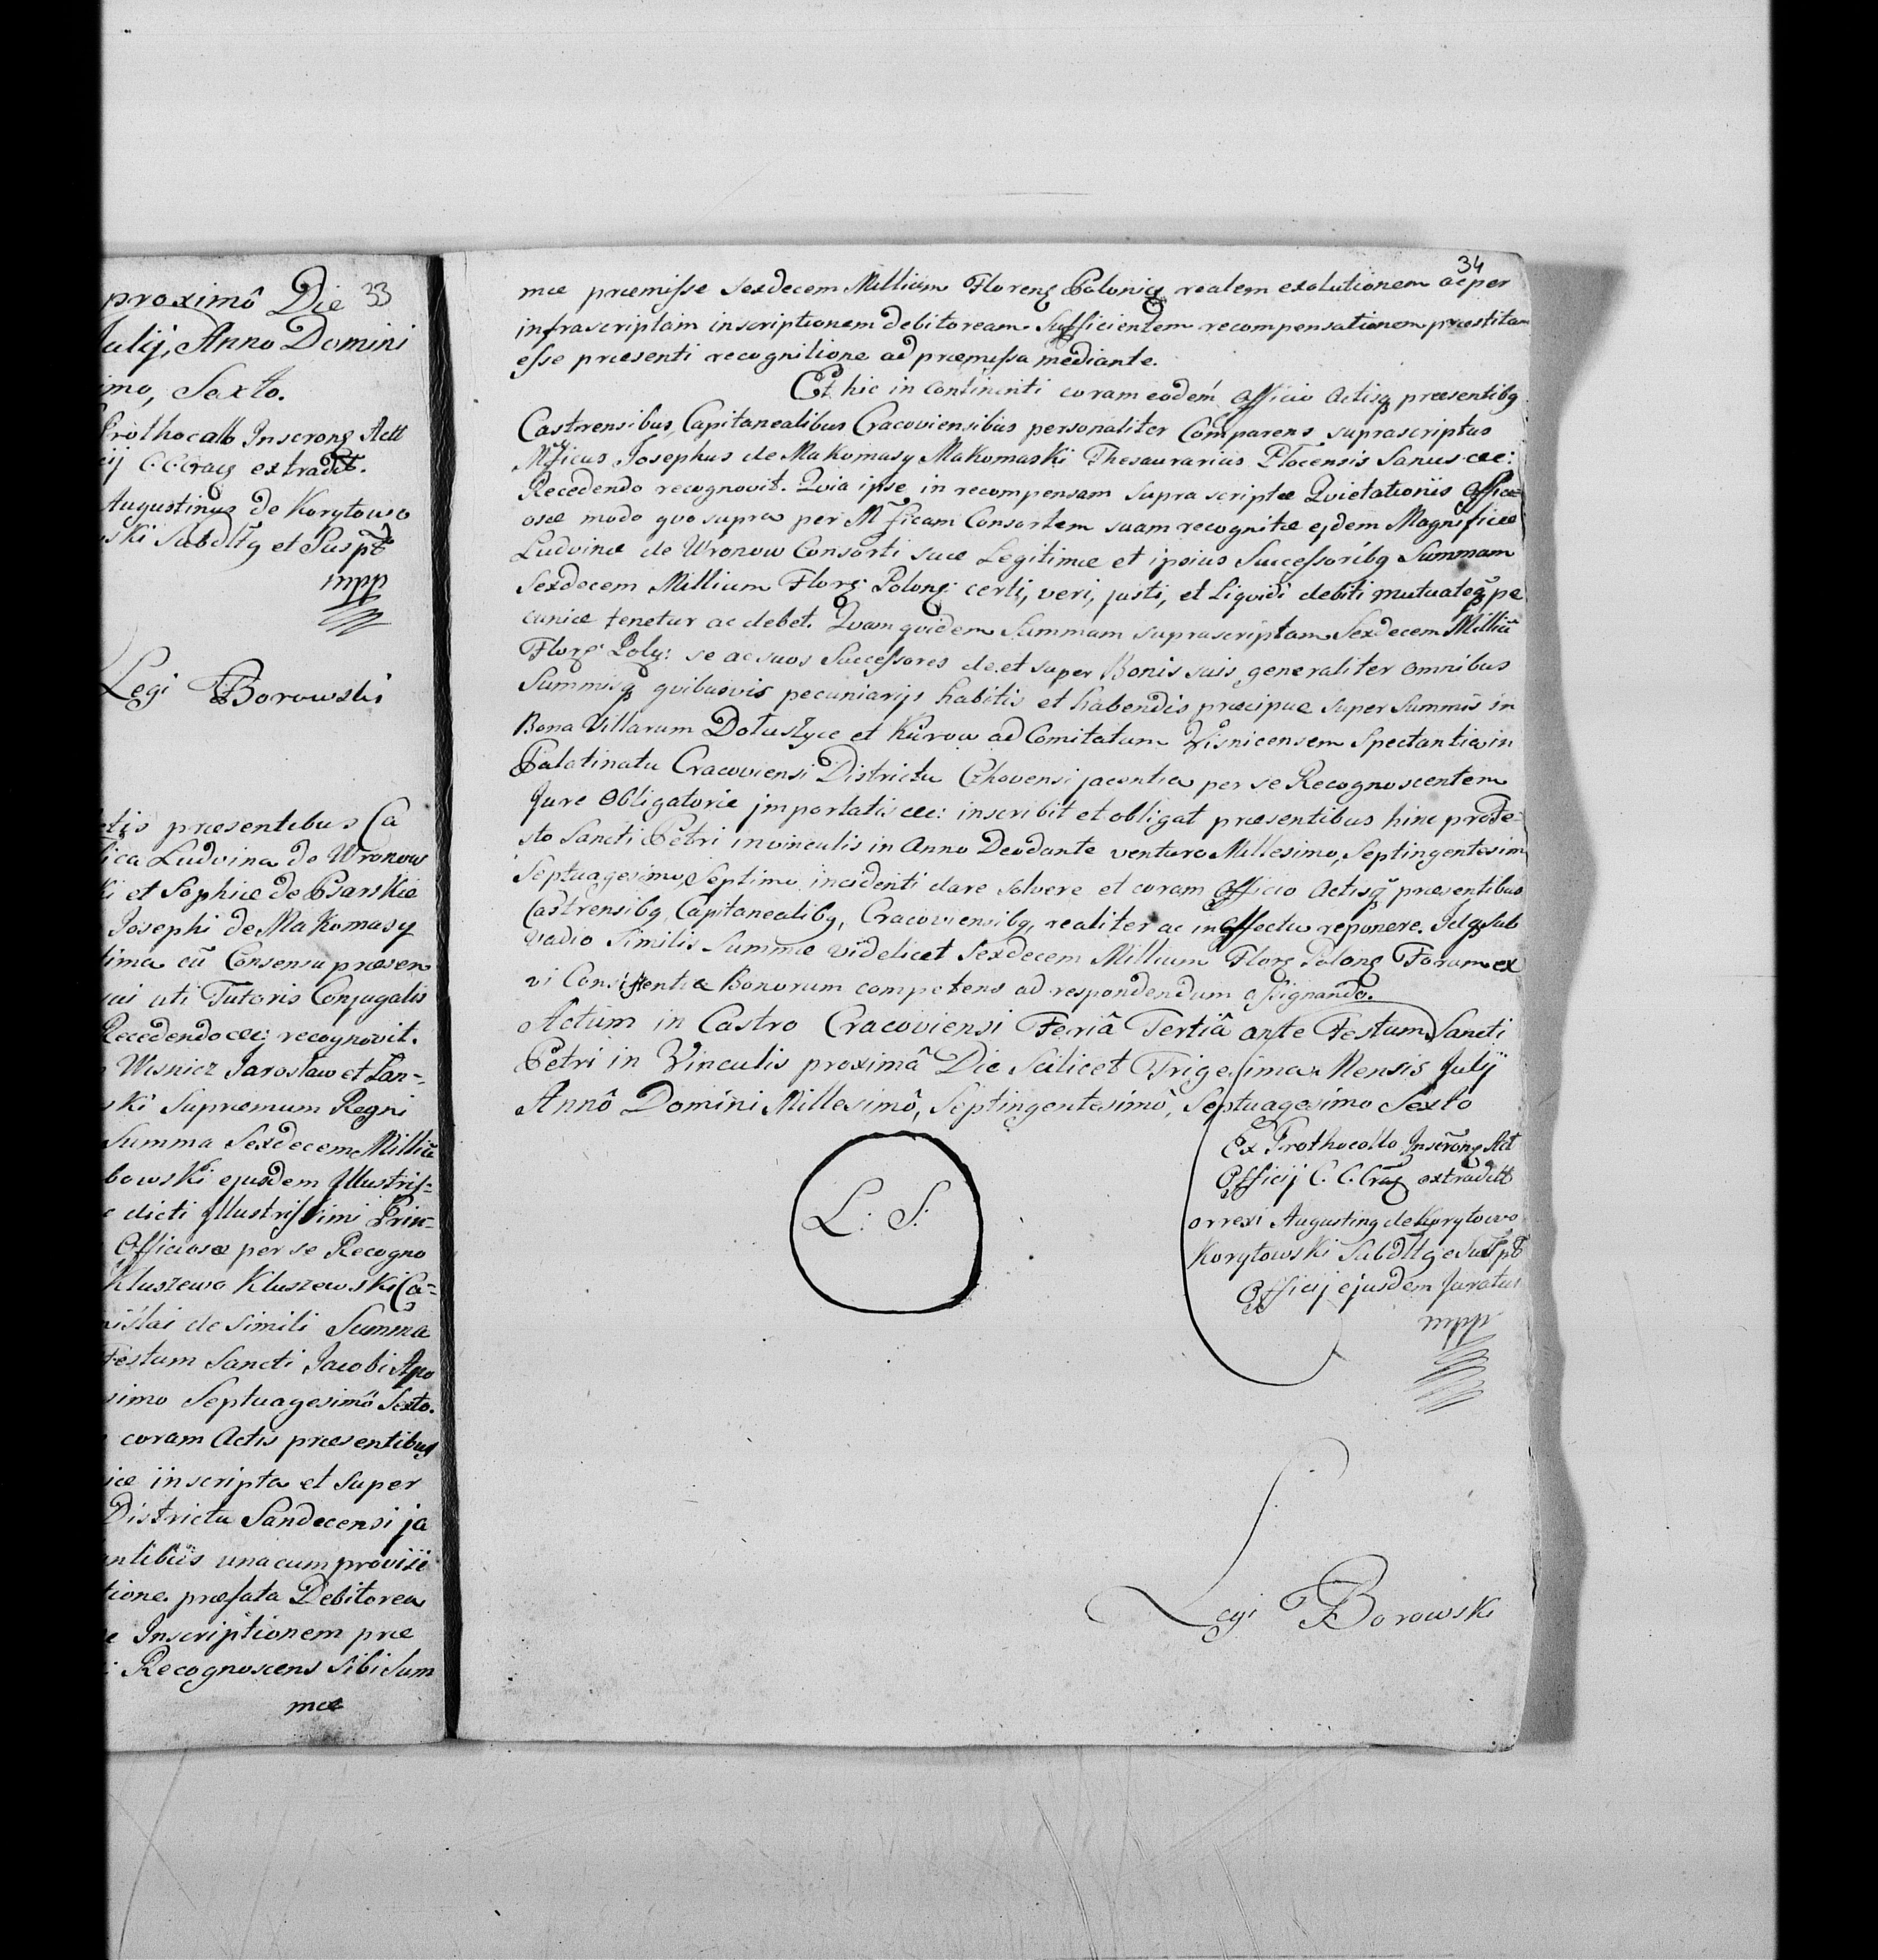 33
proximô Die
Julij, Anno Domini
imo, Sexto.
Prothocollo Inscrong Actt
cij C. Cracg extradit.
Augustinus de Korytowo
ski Subdltg et Suspt
mpp
Legi TBorowski
ctis praesentibus Ca
fica Ludvina de Wronow
ki et Sophiae de Psarskie
Josephi de Makomasy
tima cũ Consensu praesen
sui uti Tutoris Conjugalis
Recedendo cec: recognovit.
Wisnicz Jaroslaw et Lan-
ski Supraemum Regni
Summa Sexdecem Milliũ
bowski ejusdem Illustris-
c dicti Illustrissimi Prin-
Officiosae per se Recogno
Kluszewo Kluszewski Ca-
nislai de simili Summa
Festum Sancti Jacobi Apo
simo Septuagesimô Sexto.
coram Actis praesentibus
ice inscripta et super
Districtu Sandecensi ja
antibus una cum provisi
tione praefata Debitorea
e Inscriptionem prae
: Recognoscens sibi Sum
mae
34
mae praemissae Sexdecem Millium Floreng Polonicg realem exolutionem ac per
infrascriptam inscriptionem debitoream Sufficientem recompensationem praestitam
esse praesenti recognitione ad praemissa mediante.
Et hic in continenti coram eodem Officio Actisq praesentibg
Castrensibus, Capitanealibus Cracoviensibus personaliter Comparens suprascriptus
Mficus Josephus de Makomasy Makomaski Thesaurarius Plocensis Sanus cec:
Recedendo recognovit. Quia ipse in recompensam supra scriptae Quietationis Offici-
osae modo quo supra per Mficam Consortem suam recognitae ejdem Magnificae
Ludvinae de Wronow Consorti suae Legitimae et ipsius Successoribg Summam
Sexdecem Millium Florg Polong: certi, veri, justi, et Liquidi debiti mutuateq pe
cuniae tenetur ac debet. Quam quidem Summam suprascriptam Sexdecem Milliũ
Florg. Polg: se ac suos Successores de et super Bonis suis generaliter omnibus
Summisq quibusvis pecuniarijs habitis et habendis praecipue super Summis in
Bona Villarum Dołuszyce et Kurow ad Comitatum Visnicensem Spectantia in
Palatinatu Cracoviensi Districtu Czhovensi jacentia per se Recognoscentem
Jure Obligatorie importatis cec: inscribit et obligat praesentibus hinc pro Fe-
sto Sancti Petri in vinculis in Anno Deo dante venturo Millesimo, Septingentesimo
Septuagesimo, Septimo incidenti dare solvere et coram Officio Actisq praesentibus
Castrensibg, Capitanealibg, Cracoviensibg, realiter ac in effectu reponere. Idq sub
vadio similis Summae videlicet Sexdecem Millium Florg Polong Forum ex
vi Consistentiae Bonorum competens ad respondendum assignando.
Actum in Castro Cracoviensi Feriâ Tertiâ ante Festum Sancti
Petri in Vinculis proximâ Die Scilicet Trigesima Mensis Julij
Annô Domini Millesimô, Septingentesimô, Septuagesimo Sexto
L: S:
Ex Prothocollo Inscrong Act
Officij C. C. Cracg extraditt
orrexi Augusting de Korytowo
Korytowski Subdltg et Suspt
Officij ejusdem Juratus
mpp
Legi TBorowski